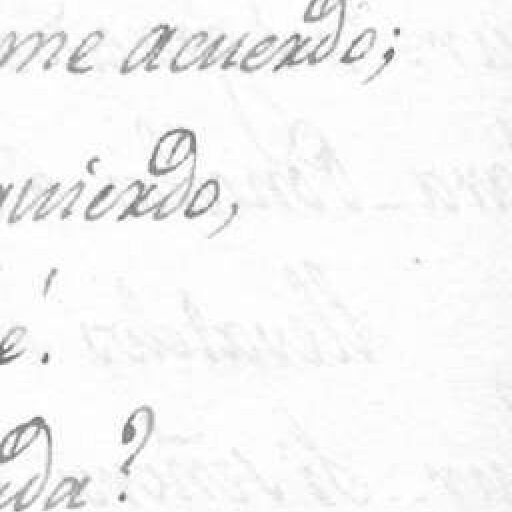 me acuerdo;
quierdo,
é!
da?